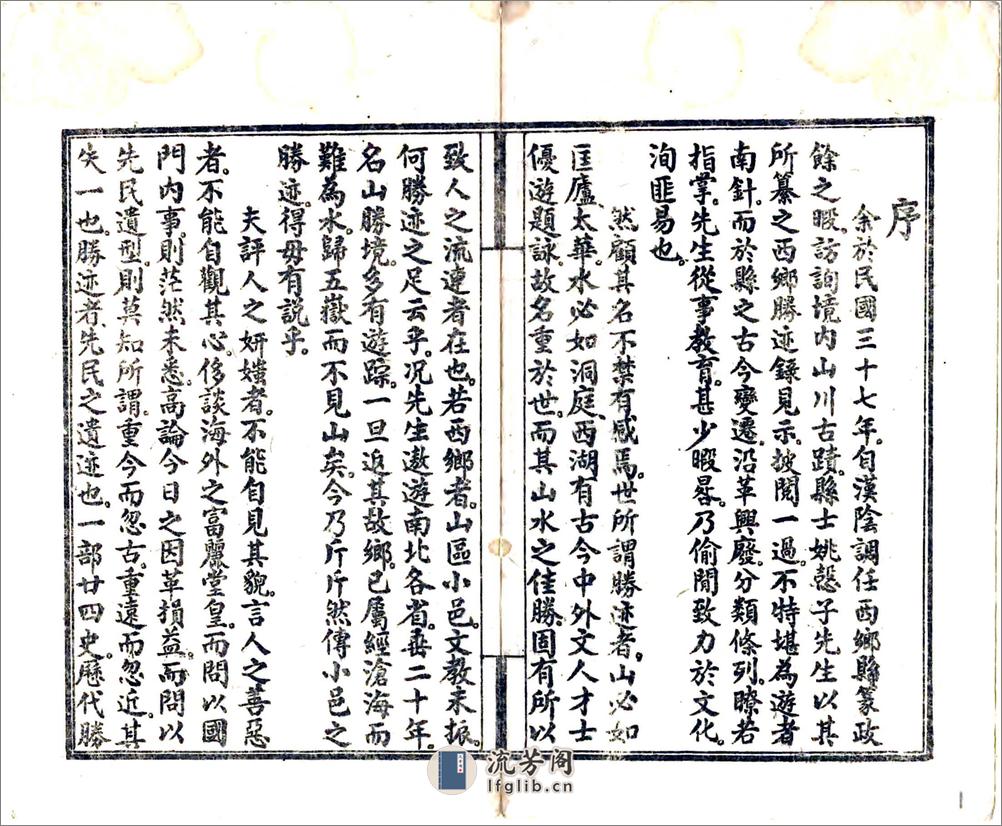 序
余於民國三十七年。自漢陰調任西鄉縣篆政
餘之暇。訪詢境內山川古蹟。縣士姚愨子先生以其
所纂之西鄉勝迹錄見示。披閱一過。不特堪為遊者
南針。而於縣之古今變遷。沿革興廢。分類條列。瞭若
指掌。先生從事教育。甚少暇晷。乃偷閒致力於文化。
洵匪易也。
然顧其名不禁有感焉。世所謂勝迹者。山必如
匡廬太華。水必如洞庭西湖。有古今中外文人才士
優遊題詠。故名重於世。而其山水之佳勝。固有所以
致人之流連者在也。若西鄉者。山區小邑。文教未振。
何勝迹之足云乎。况先生遨遊南北各省垂二十年。
名山勝境。多有遊踪。一旦返其故鄉。已屬經滄海而
難為水。歸五嶽而不見山矣。今乃斤斤然傳小邑之
勝迹。得毋有說乎。
夫評人之妍媸者。不能自見其貌。言人之善惡
者。不能自觀其心。侈談海外之富麗堂皇。而問以國
門內事。則茫然未悉。高論今日之因革損益。而問以
先民遺型。則莫知所謂。重今而忽古。重遠而忽近。其
失一也。勝迹者。先民之遺迹也。一部廿四史。歷代勝
流芳阁
lfglib.cn